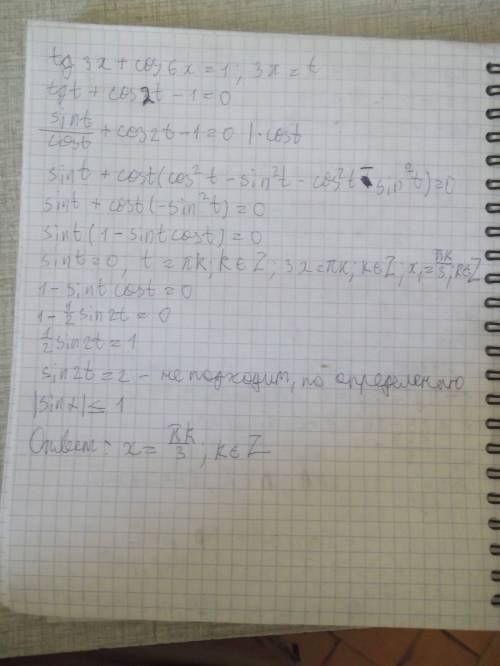 tg 3x + cos 6x = 1 ; 3x = t
tgt + cos2t - 1 = 0
sint/cost + cos2t - 1 = 0 |· cost
sint + cost(cos²t - sin²t - cos²t - sin²t) = 0
sint + cost(-sin²t) = 0
sint(1 - sint cost) = 0
sint = 0, t = πk, k ∈ Z; 3x = πk, k ∈ Z, x₁ = πk/3, k ∈ Z
1 - sint cost = 0
1 - ½ sin2t = 0
½ sin2t = 1
sin2t = 2 - не подходит, по определению
|sinα| ≤ 1
Ответ: x = πk/3 ; k ∈ Z